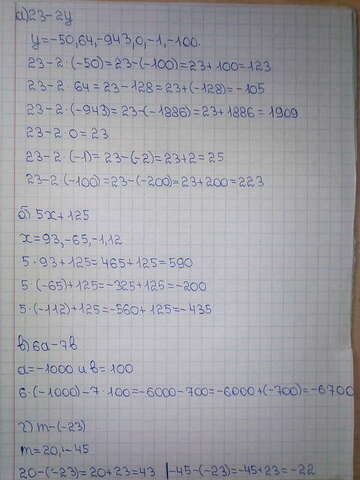 а) 23-2y
y=-50,64,-943,0,-1,-100.
23-2·(-50)=23-(-100)=23+100=123
23-2·64=23-128=23+(-128)=-105
23-2·(-943)=23-(-1886)=23+1886=1909
23-2·0=23
23-2·(-1)=23-(-2)=23+2=25
23-2·(-100)=23-(-200)=23+200=223
б) 5x+125
x=93,-65,-1,12
5·93+125=465+125=590
5·(-65)+125=-325+125=-200
5·(-112)+125=-560+125=-435
в) 6а-7в
а=-1000 и в=100
6·(-1000)-7·100=-6000-700=-6000+(-700)=-6700
г) m-(-23)
m=20,-45
20-(-23)=20+23=43 | -45-(-23)=-45+23=-22